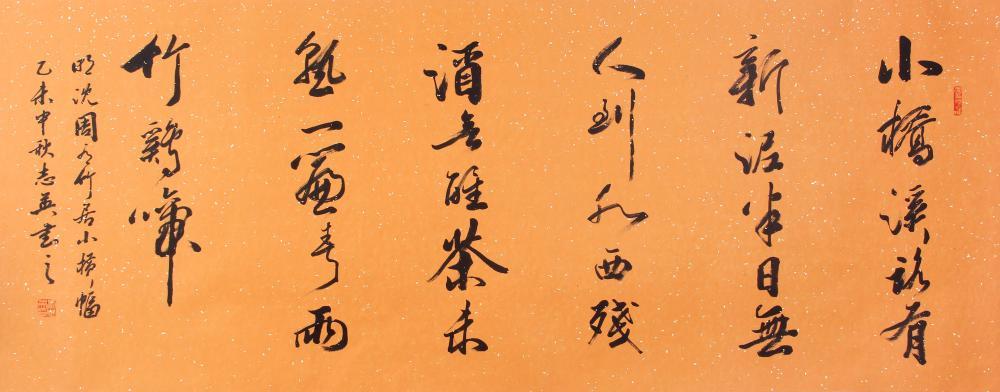 小橋溪路有
新泥半日無
人到水西殘
酒醒茶未
熟一簾春雨
竹鷄啼
明沈周有竹居小橫幅
乙未中秋志英書之